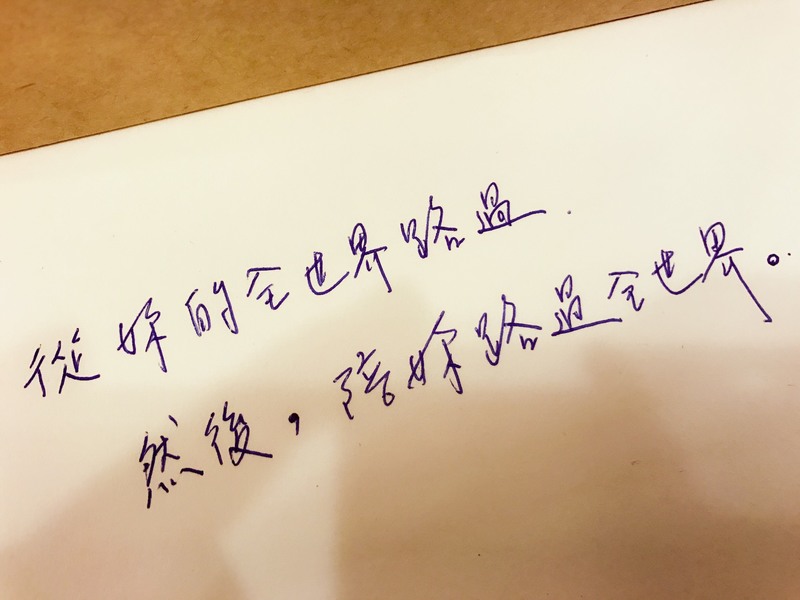 從妳的全世界路過.
然後，陪妳路過全世界。